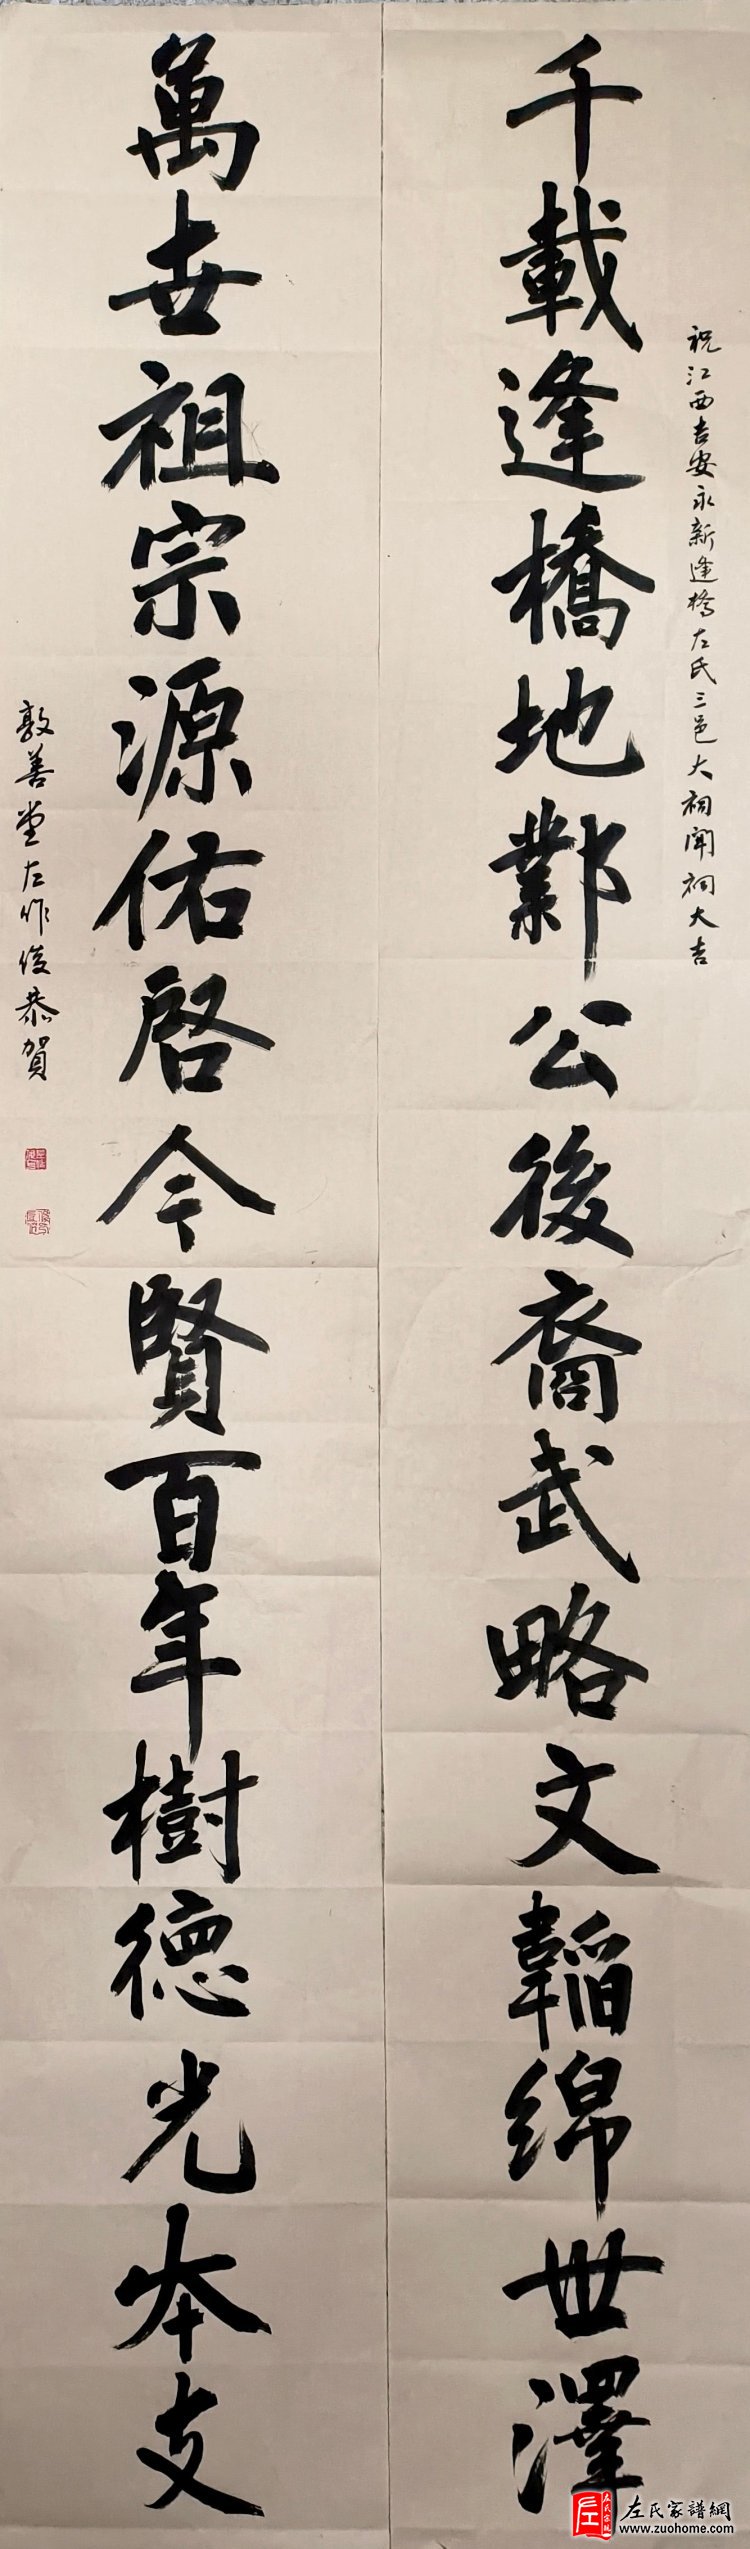 祝江西吉安永新逢橋左氏三邑大祠開祠大吉
千載逢橋地鄴公後裔武略文韜綿世澤
萬世祖宗源佑啓今賢百年樹德光本支
敦善堂左作俊恭賀
左氏家譜網
www.zuohome.com